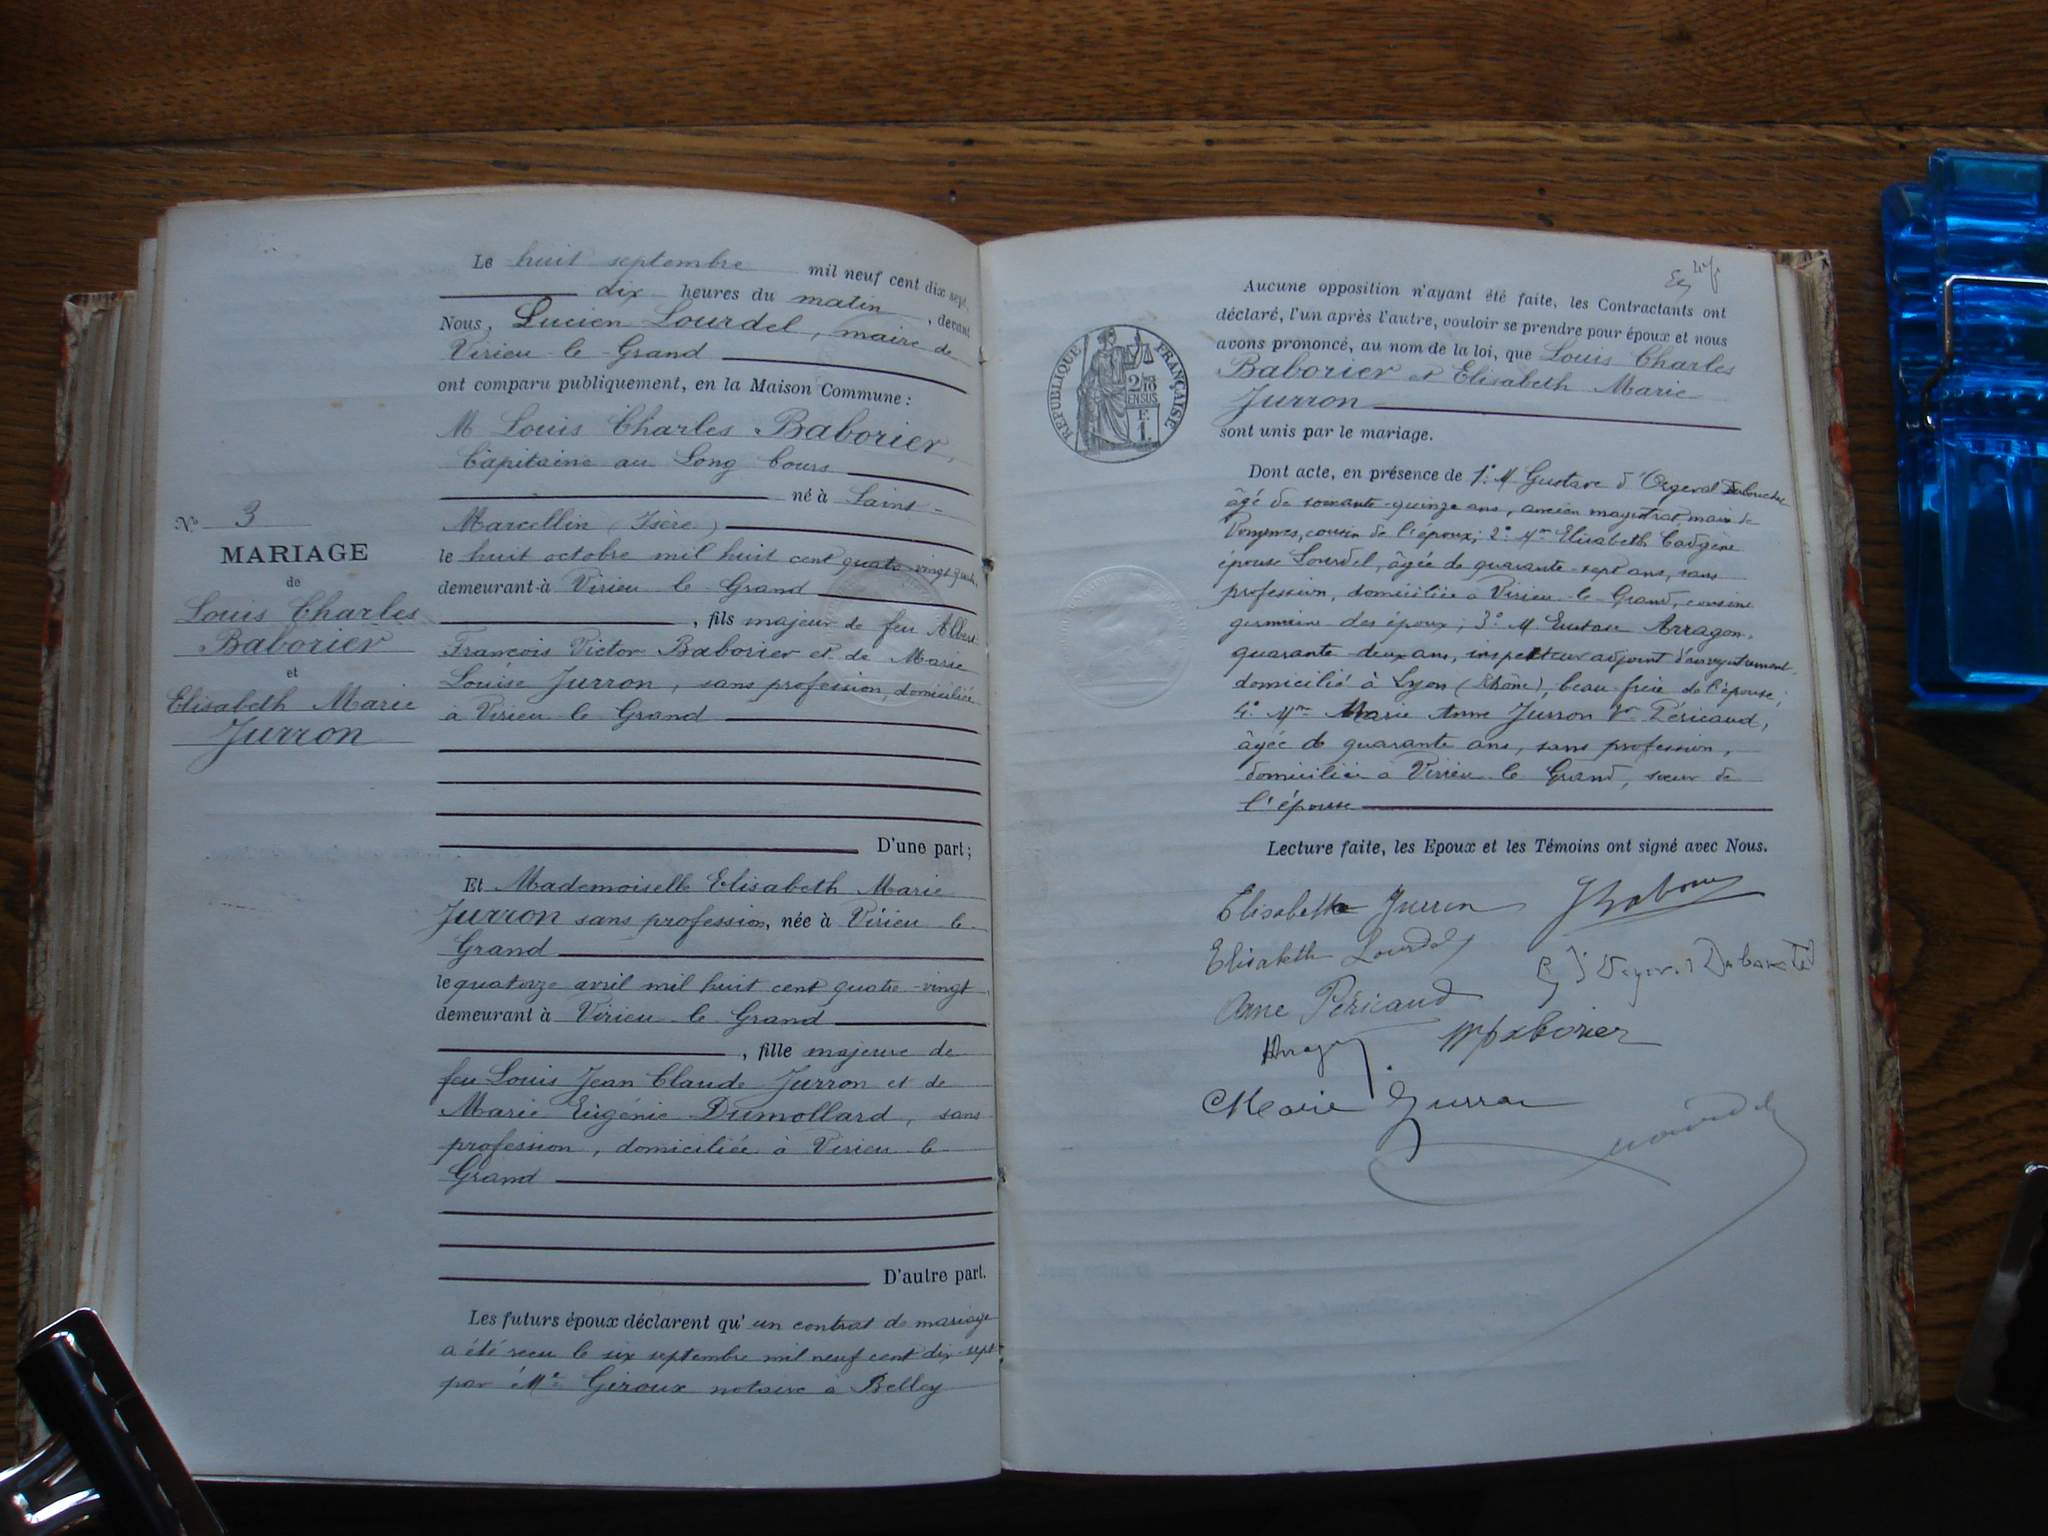 Le huit septembre mil neuf cent dix sept,
dix heures du matin, devant
Nous, Lucien Lourdel, maire de
Virieu-le-Grand
ont comparu publiquement, en la Maison Commune :
M Louis Charles Baborier,
Capitaine au Long Cours
né à Saint-
Marcellin (Isère)
le huit octobre mil huit cent quatre-vingt
demeurant à Virieu-le-Grand
, fils majeur de feu Albert
François Victor Baborier et de Marie
Louise Jurron, sans profession, domiciliée
à Virieu-le-Grand
D'une part ;
Nº 3
MARIAGE
de
Louis Charles
Baborier
et
Elisabeth Marie
Jurron
Et Mademoiselle Elisabeth Marie
Jurron sans profession, née à Virieu-le-
Grand
le quatorze avril mil huit cent quatre-vingt
demeurant à Virieu-le-Grand
, fille majeure de
feu Louis Jean Claude Jurron et de
Marie Eugénie Dumollard, sans
profession, domiciliée à Virieu-le-
Grand
D'autre part.
Les futurs époux déclarent qu'un contrat de mariage
a été reçu le six septembre mil neuf cent dix-sept
par Me Giroux notaire à Belley
RÉPUBLIQUE FRANÇAISE
2 10es
EN SUS
F.
1.
Aucune opposition n'ayant été faite, les Contractants ont
déclaré, l'un après l'autre, vouloir se prendre pour époux et nous
avons prononcé, au nom de la loi, que Louis Charles
Baborier et Elisabeth Marie
Jurron
sont unis par le mariage.
Dont acte, en présence de 1º M. Gustave d'Orgeval
âgé de soixante-quinze ans, ancien magistrat, maire de
cousin de l'époux ; 2º Mme Elisabeth
épouse Lourdel, âgée de quarante-sept ans, sans
profession, domiciliée à Virieu-le-Grand, cousine
germaine des époux ; 3º M. Arragon,
quarante-deux ans, inspecteur adjoint d'enregistrement
domicilié à Lyon (Rhône), beau-frère de l'épouse ;
4º Mme Marie Anne Jurron Vve Péricaud,
âgée de quarante ans, sans profession,
domiciliée à Virieu-le-Grand, sœur de
l'épouse
Lecture faite, les Epoux et les Témoins ont signé avec Nous.
Elisabeth Jurron
Elisabeth Lourdel
Anne Péricaud
Baborier
Marie Jurron